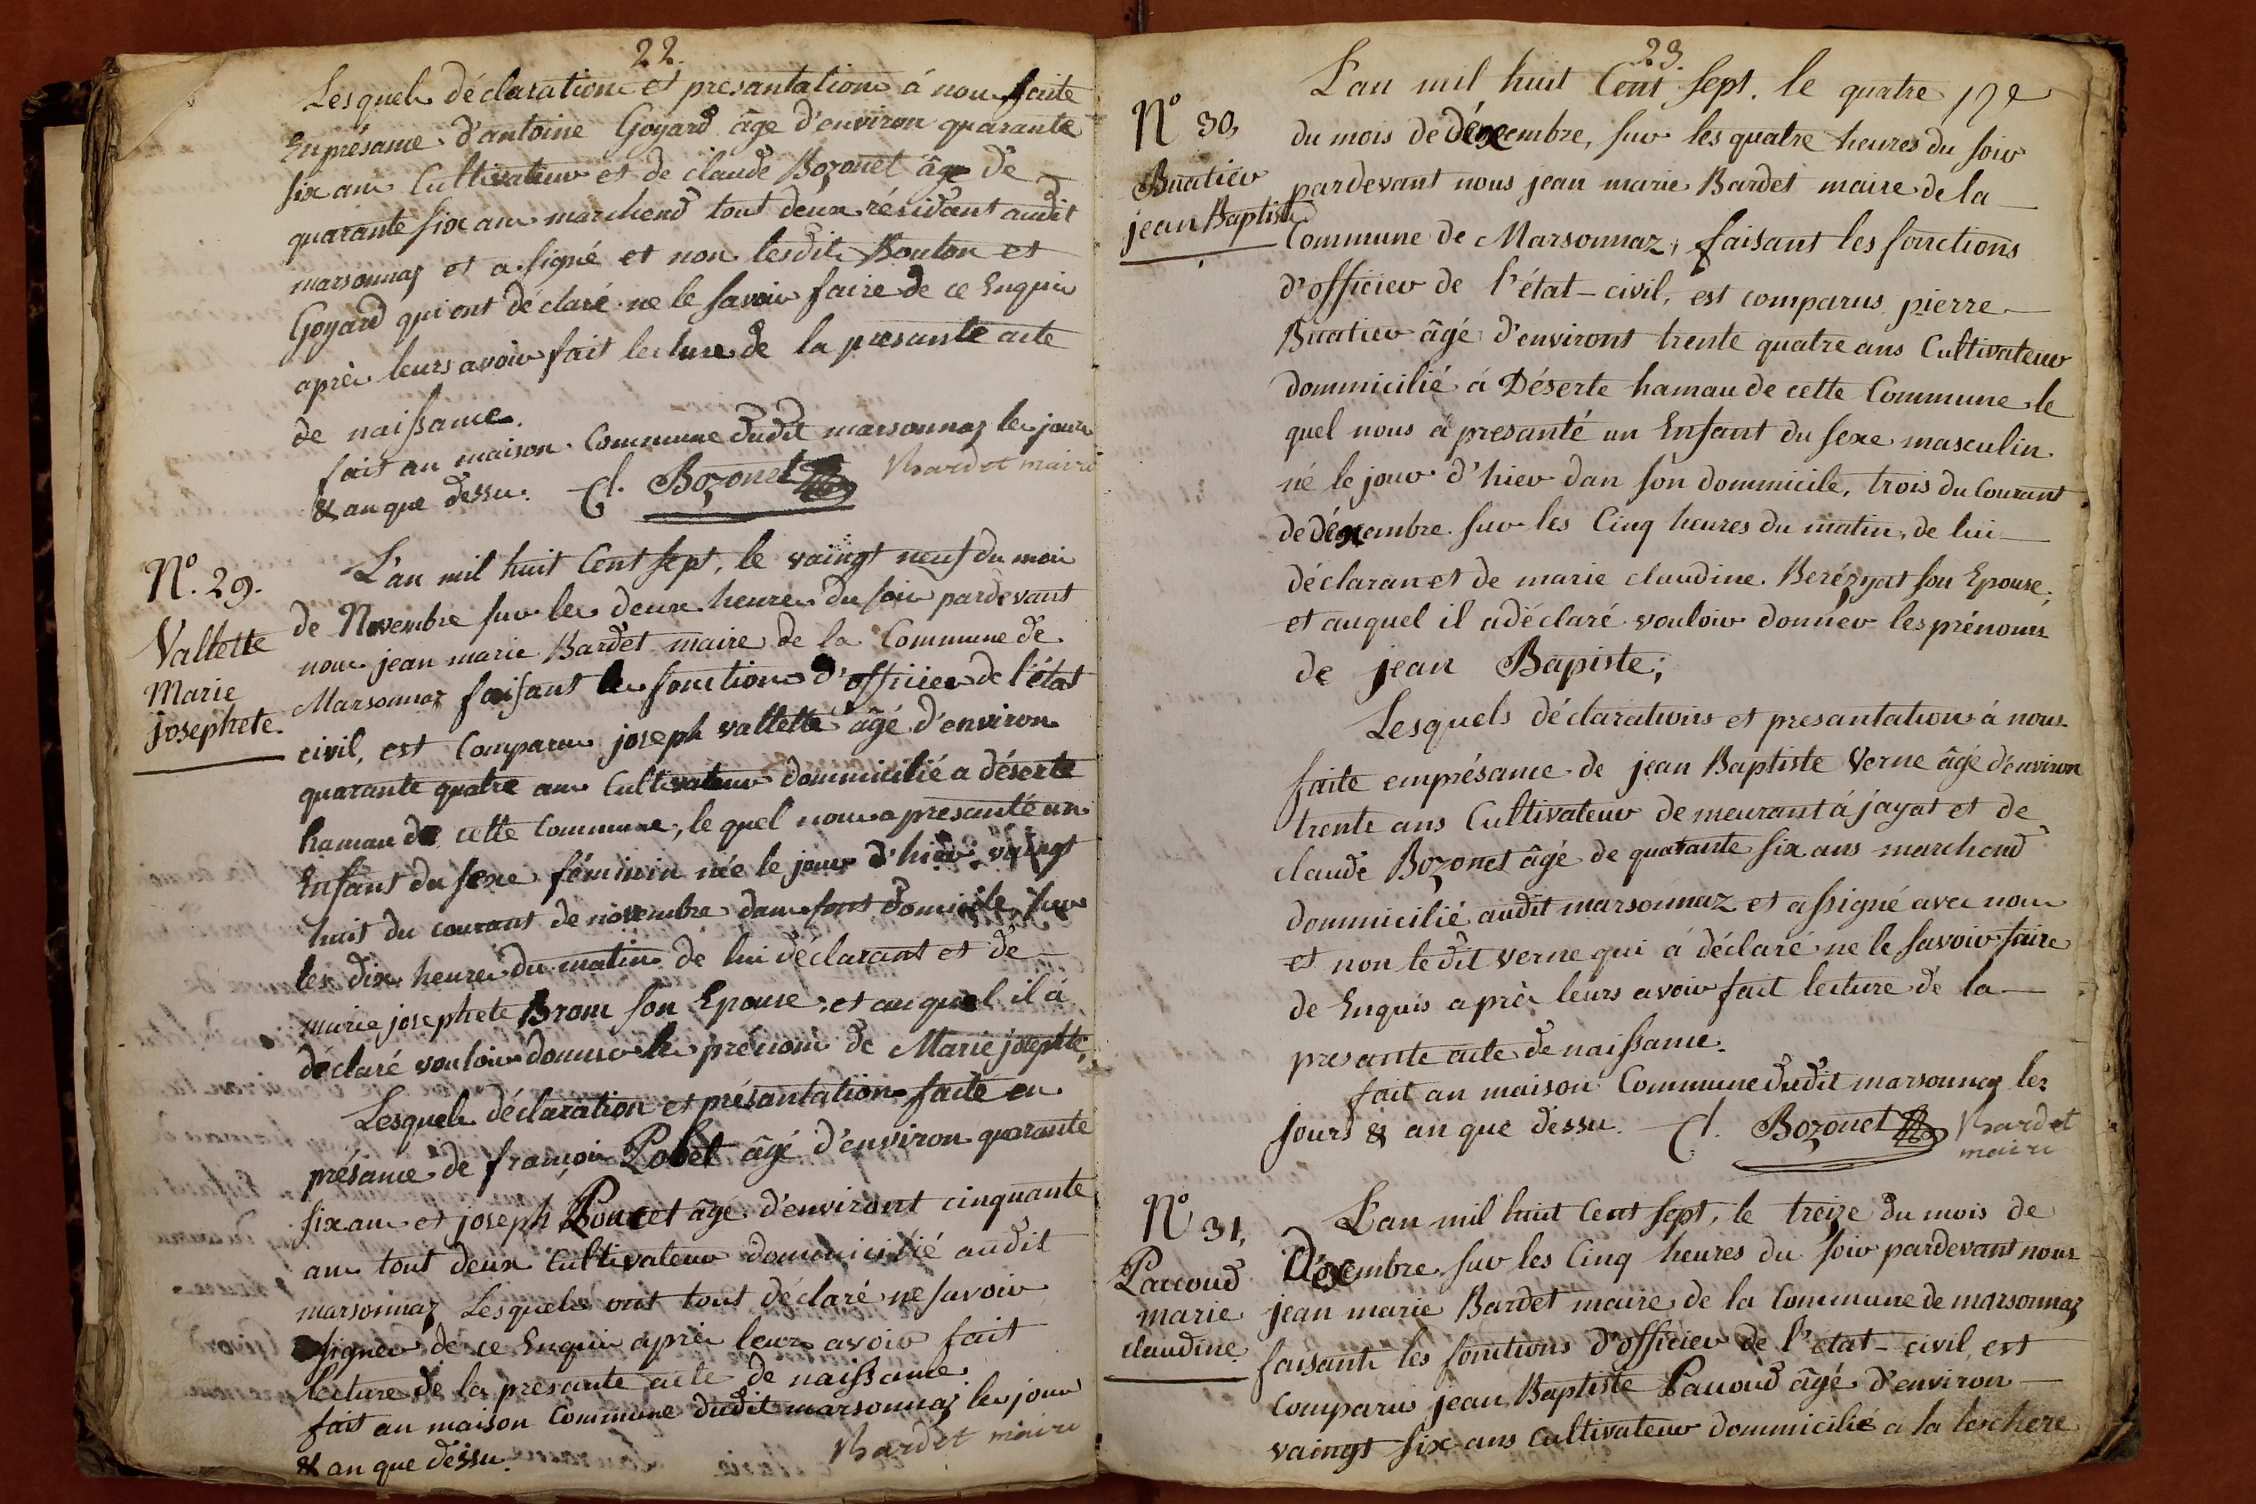 22.
Lesquels déclarations et presantations á nous faite
Enprésame d'antoine Goyard âge d'environ quarante
six ans Cultivateur et de claude Bozonet âge de
quarante six ans marchend tout deux résidant audit
marsonnaz et a signé et non lesdits Bouton et
Goyard qui ont déclaré ne le savoir faire de ce Enquis
après leurs avoir fait lecture de la presante acte
de naissance.
fait au maison Commune dudit marsonnaz les jours
& an que dessus. Cl. Bozonet Bardet maire
N°. 29.
Vallette
Marie
josephete.
L'an mil huit Cent sept, le vaingt neuf du mois
de Novembre sur les deux heures du soir pardevant
nous jean marie Bardet maire de la Commune de
Marsonnaz faisant les fonctions d'officier de l'état
civil, est Comparu joseph vallette âgé d'environ
quarante quatre ans Cultivateur dommicilié a déserte
hamau de cette Commune, le quel nous a presanté un
Enfant du sexe féminin née le jour d'hier vaingt
huit du courant de novembre dans sont domicile, sur
les dix heures du matin de lui déclarant et de
marie josephete Brom son Epouse, et auquel il á
déclaré vouloir donner les prénoms de Marie josephte;
Lesquels déclaration et présantations faite en
présame de françois Pobel âgé d'environ quarante
six ans et joseph Poncet âgé d'environt cinquante
ans tout deux Cultivateur dommicilié audit
marsonnaz Lesquels ont tout déclaré ne savoir
signer de ce Enquis après leurs avoir fait
lecture de la presante acte de naissance.
fait au maison Commune dudit marsonnaz les jour
& an que dessu. Bardet maire
23.
N° 30,
Buatier
jean Baptiste
L'an mil huit Cent sept. le quatre
du mois de décembre, sur les quatre heures du soir
pardevant nous jean marie Bardet maire de la
Commune de Marsonnaz, faisant les fonctions
d'officier de l'état-civil, est comparus pierre
Buatier âgé d'environs trente quatre ans Cultivateur
dommicilié á Déserte hamau de cette Commune le
quel nous á presanté un Enfant du sexe masculin
né le jour d'hier dan son dommicile, trois du Courant
de décembre sur les Cinq heures du matin, de lui
déclaran et de marie claudine Berézyat son Epouse;
et auquel il adéclaré vouloir donner les prénoms
de jean Bapiste;
Lesquels déclarations et presantations á nous
faite emprésame de jean Baptiste Verne âgé d'environ
trente ans Cultivateur demeurant á jayat et de
claude Bozonet âgé de quatante six ans marchend
dommicilié audit marsonnaz et assigné avec nous
et non le dit verne qui á déclaré ne le savoir faire
de Enquis après leurs avoir fait lecture de la
presante acte de naissance.
fait au maison Commune dudit marsonnaz les
jours & an que dessu. Cl. Bozonet Bardet
maire
N° 31,
Paccoud
marie
claudine.
L'an mil huit Cent sept, le treize du mois de
Décembre sur les Cinq heures du soir pardevant nous
jean marie Bardet maire de la Commune de marsonnaz
faisant les fonctions d'officier de l'état-civil, est
Comparus jean Baptiste Paccoud âgé d'environ
vaingt six ans cultivateur dommicilié a la lechere